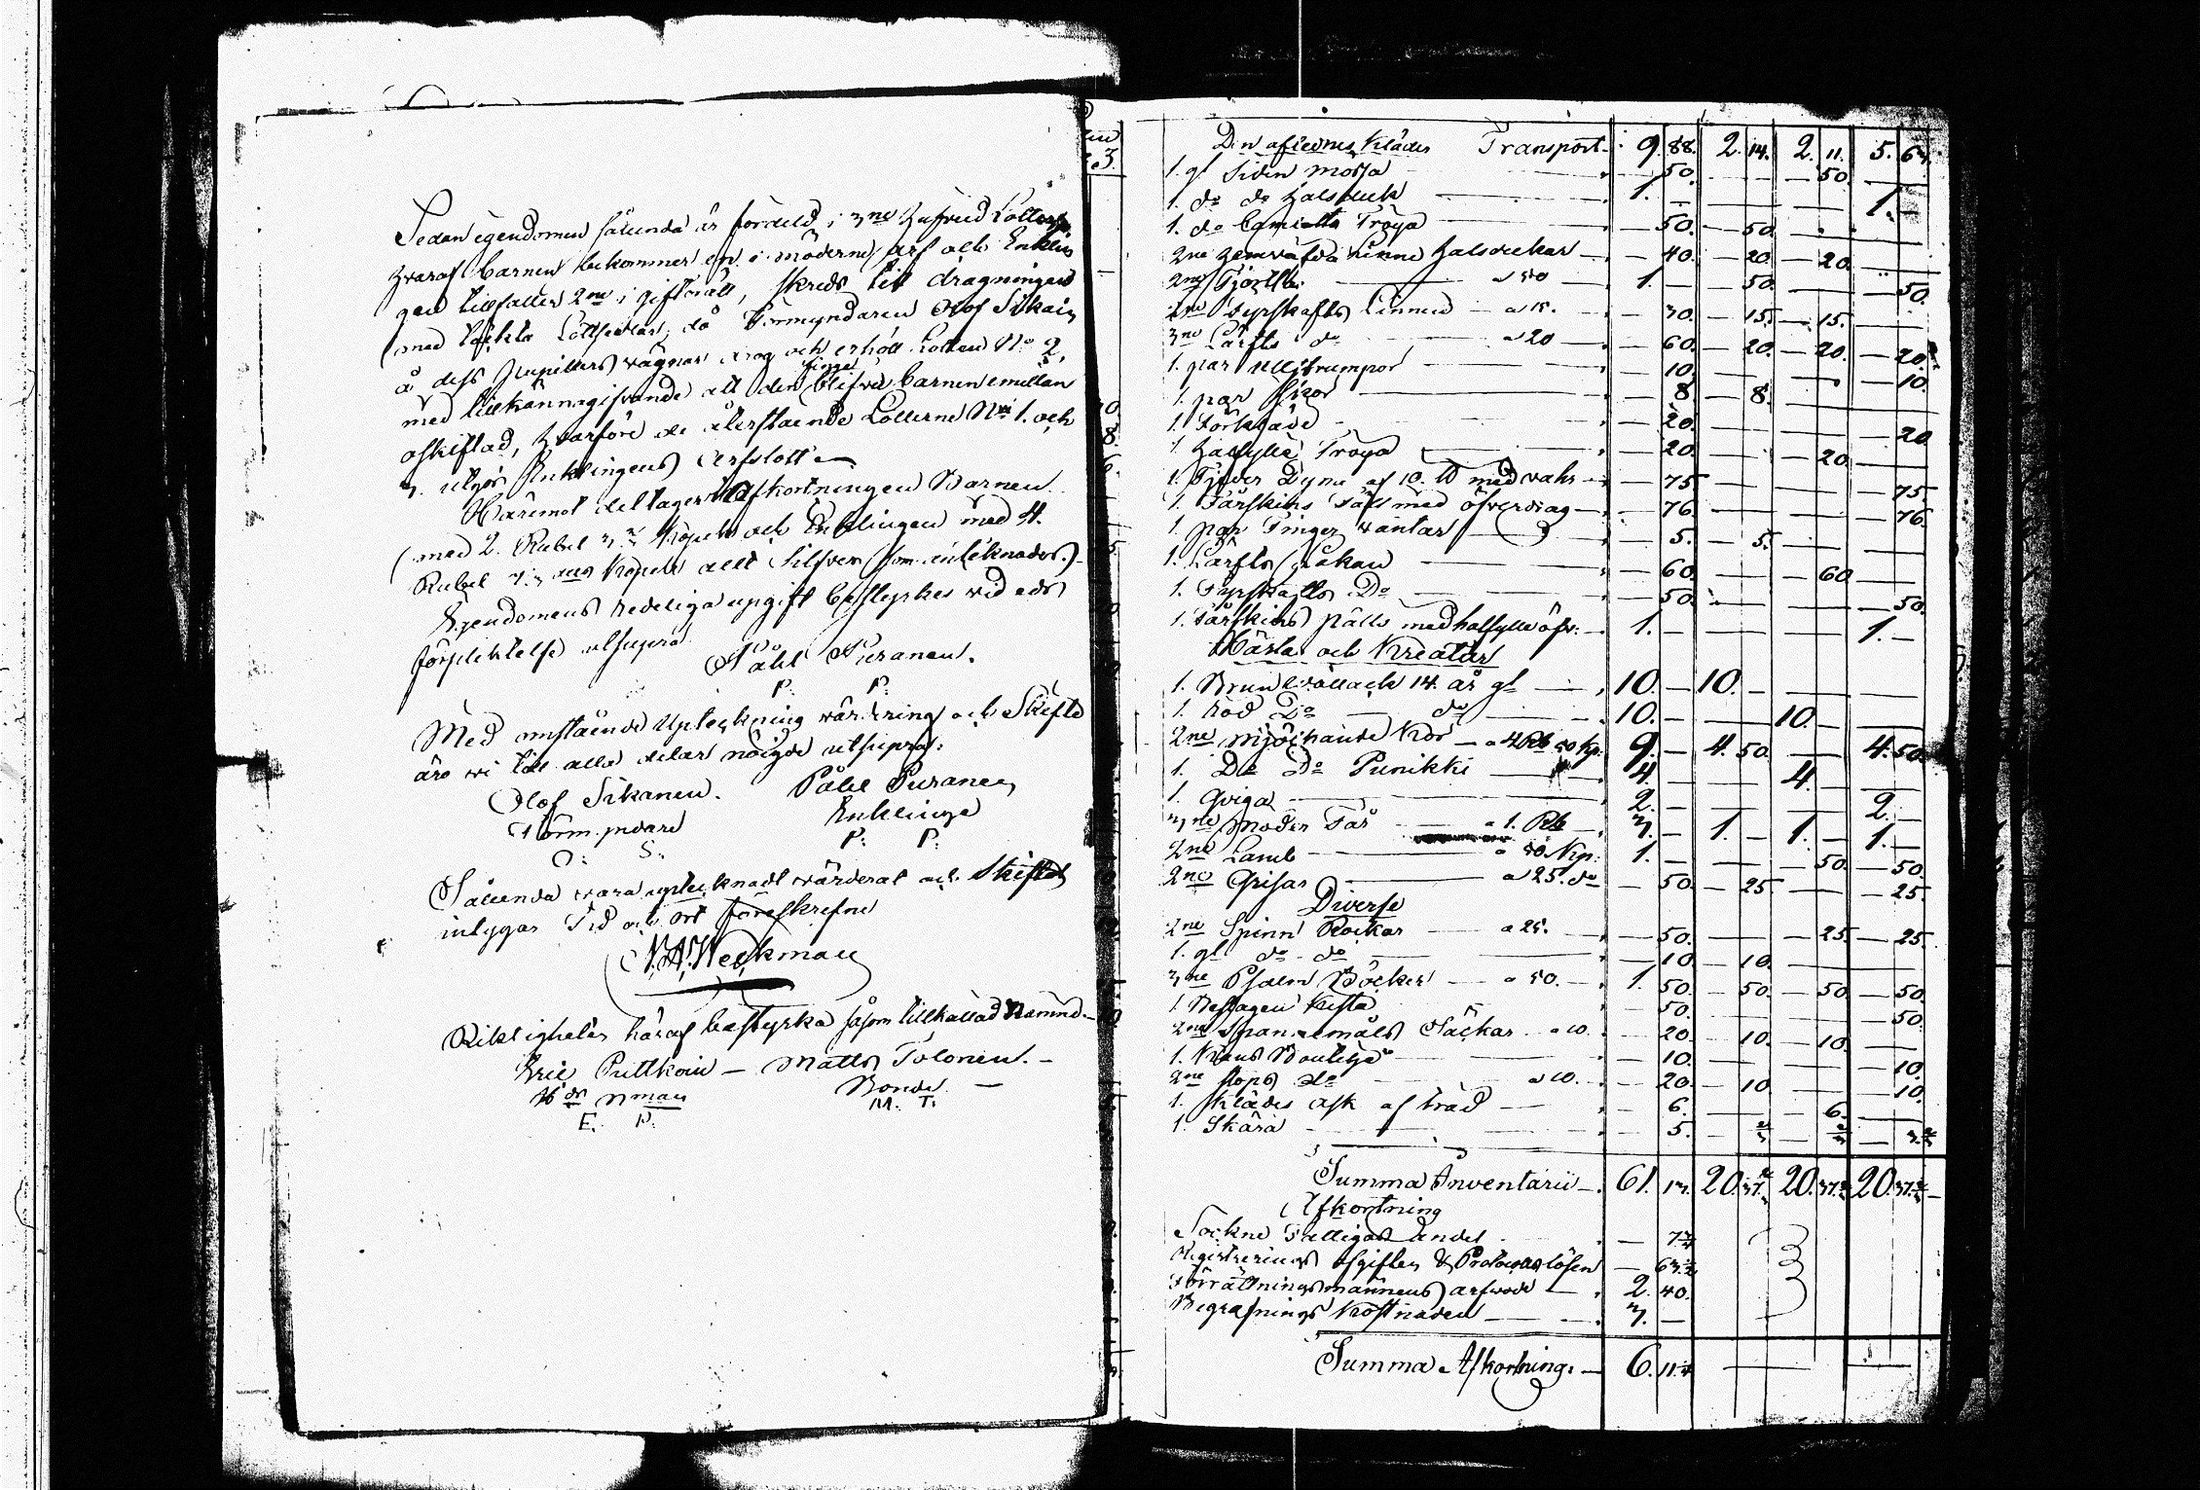 Sedan egendomen sålunda är fördeld i 3ne hufvud Lotter,
hvaraf barnen bekommer en i möderne arf och Enklin
gen tillfaller 2ne i giftorätt, skreds till dragningen
med täckta Lottsedlar, då Förmyndaren Olof Sikain
å dess Pupillers vägnar drog och erhöll Lotten No 2,
med tillkännagifvande att den blifver barnen emellan
oskiftad, hvarföre de återstående Lotterne No 1. och
3. utgör Enklingens Arfslott.
Häremot deltager i Afkortningen Barnen
med 2. Rubel Kopek och Enklingen med 4.
Rubel Kopek allt Silfver som
Egendomens redeliga upgift bestyrkes vid eds
förpliktelse utsupra
Påhl Puranen.
P: P:
Med omstående Upteckning värdering och Skifte
äro vi till alla delar nöigde utsupra:
Olof Sikanen. Påhl Puranen
Förmyndare Enklinge
O: S: P: P:
Sålunda vara upteknadt värderat och Skiftet
intygar Tid och ort föreskrefne
Weckman
Riktigheten häraf bestyrka såsom tillkallad Nämnd.
Eric Puttkoin – Matts Tolonen. –
Bonde –
E. P. M. T.
Den aflednes Kläder Transport. 9. 88. 2. 14. 2. 11. 5. 63.
1. gl Siden mössa — 50. — 50.
1. do do halsduk — 1. — 1. —
1. do Camlotts Tröya — 50. — 50.
2ne hemväfda linne halsdukar — 40. — 20. — 20.
2ne Kjortlar a 50 1. — 50. — 50.
2ne Fyrskafts Linnen a 15. — 30. — 15. — 15.
3ne Lärfts do a 20 — 60. — 20. — 20. — 20.
1. par ullstrumpor — 10. — 10.
1. par Skor — 8. — 8.
1. Förkläde — 20. — 20
1. halfylle Tröya — 20. — 20.
1. Fjeder Dyna af 10. ℔ med vahr — 75 — 75.
1. Fårskins Fäll med öfverdrag — 76. — 76.
1. par Finger vantar — 5. — 5.
1. Lärfts Låkan — 60. — 60
1. Fyrskafts Do — 50. — 50.
1. Fårskins pälts med halfylle öfv: — 1. — 1. —
Hästar och Kreatur
1. Brun vallack 14. år gl — 10. — 10. —
1. Röd Do — do — 10. — 10. —
2ne Mjölkande Kor — a 4 Rb 50 kp. 9. — 4. 50. — 4. 50.
1. Do Do Punikki — 4. — 4.
1. Qviga — 2. — 2. —
3ne Moder Får — a 1. Rb — 3. — 1. — 1. — 1. —
2ne Lamb — a 50 Kp. 1. — 50. — 50.
2ne Grisar — a 25. do — 50. — 25. — 25.
Diverse
2ne Spinn Rockar — a 25. — 50. — 25. — 25.
1. gl do — do — 10 — 10.
3ne Psalm Böcker — a 50. — 1. 50. — 50. — 50. — 50.
1. Beslagen Kista — 50. — 50.
2ne Spannemåls Säckar a 10. — 20. — 10. — 10.
1. Kruus Boutelje — 10. — 10.
2ne stops do a 10. — 20. — 10. — 10.
1. Klädes ask af träd — 6. — 6.
1. Skära — 5.
Summa Inventarii — 61. 13. 20. 37. 20. 37. 20. 37.
Afkortning
Sockne Fattigas andel — 7
Registrerings afgiften & Protocolls lösen — 63
Förrättningsmännens arfvode — 2. 40.
Begrafnings Kostnaden — 3. —
Summa Afkortning. — 6. 11.